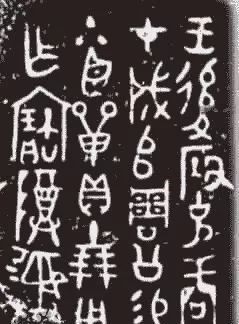 王後克商
才成𠂤周公易
小臣單貝十朋用
乍寶𨺅彝